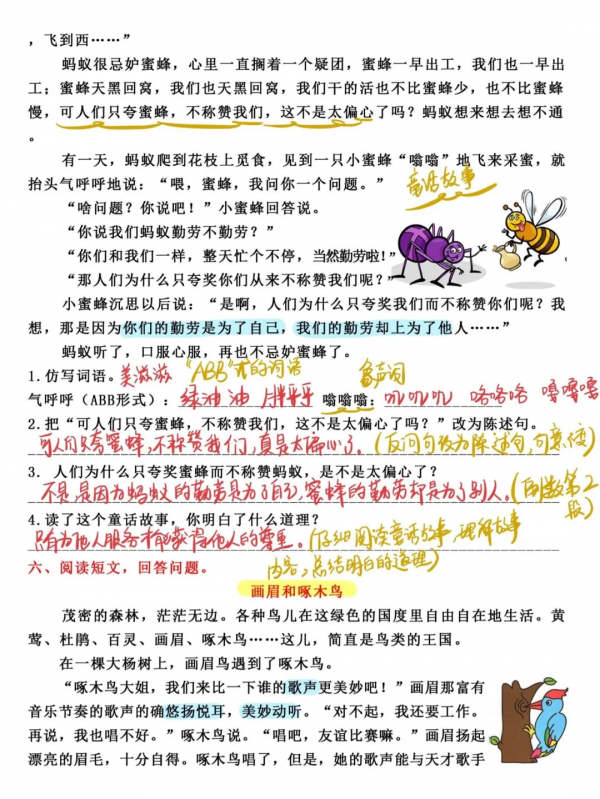 ，飞到西……”
蚂蚁很忌妒蜜蜂，心里一直搁着一个疑团，蜜蜂一早出工，我们也一早出
工；蜜蜂天黑回窝，我们也天黑回窝，我们干的活也不比蜜蜂少，也不比蜜蜂
慢，可人们只夸蜜蜂，不称赞我们，这不是太偏心了吗？蚂蚁想来想去想不通
。
有一天，蚂蚁爬到花枝上觅食，见到一只小蜜蜂“嗡嗡”地飞来采蜜，就
抬头气呼呼地说：“喂，蜜蜂，我问你一个问题。”
童话故事
“啥问题？你说吧！”小蜜蜂回答说。
“你说我们蚂蚁勤劳不勤劳？”
“你们和我们一样，整天忙个不停，当然勤劳啦！”
“那人们为什么只夸奖你们从来不称赞我们呢？”
小蜜蜂沉思以后说：“是啊，人们为什么只夸奖我们而不称赞你们呢？我
想，那是因为你们的勤劳是为了自己，我们的勤劳却上为了他人……”
蚂蚁听了，口服心服，再也不忌妒蜜蜂了。
1.仿写词语。美滋滋 “ABB”式的词语 象声词
气呼呼（ABB形式）：绿油油 胖乎乎 嗡嗡嗡：叽叽叽 咯咯咯 嘎嘎嘎
2.把“可人们只夸蜜蜂，不称赞我们，这不是太偏心了吗？”改为陈述句。
可人们只夸蜜蜂，不称赞我们，真是太偏心了。（反问句改为陈述句，句意不变）
3．人们为什么只夸奖蜜蜂而不称赞蚂蚁，是不是太偏心了？
不是，是因为蚂蚁的勤劳是为了自己，蜜蜂的勤劳却是为了别人。（倒数第2
段）
4.读了这个童话故事，你明白了什么道理？
只有为他人服务才能获得他人的尊重。（仔细阅读童话故事，理解故事
内容，总结明白的道理）
六、阅读短文，回答问题。
画眉和啄木鸟
茂密的森林，茫茫无边。各种鸟儿在这绿色的国度里自由自在地生活。黄
莺、杜鹃、百灵、画眉、啄木鸟……这儿，简直是鸟类的王国。
在一棵大杨树上，画眉鸟遇到了啄木鸟。
“啄木鸟大姐，我们来比一下谁的歌声更美妙吧！”画眉那富有
音乐节奏的歌声的确悠扬悦耳，美妙动听。“对不起，我还要工作。
再说，我也唱不好。”啄木鸟说。“唱吧，友谊比赛嘛。”画眉扬起
漂亮的眉毛，十分自得。啄木鸟唱了，但是，她的歌声能与天才歌手